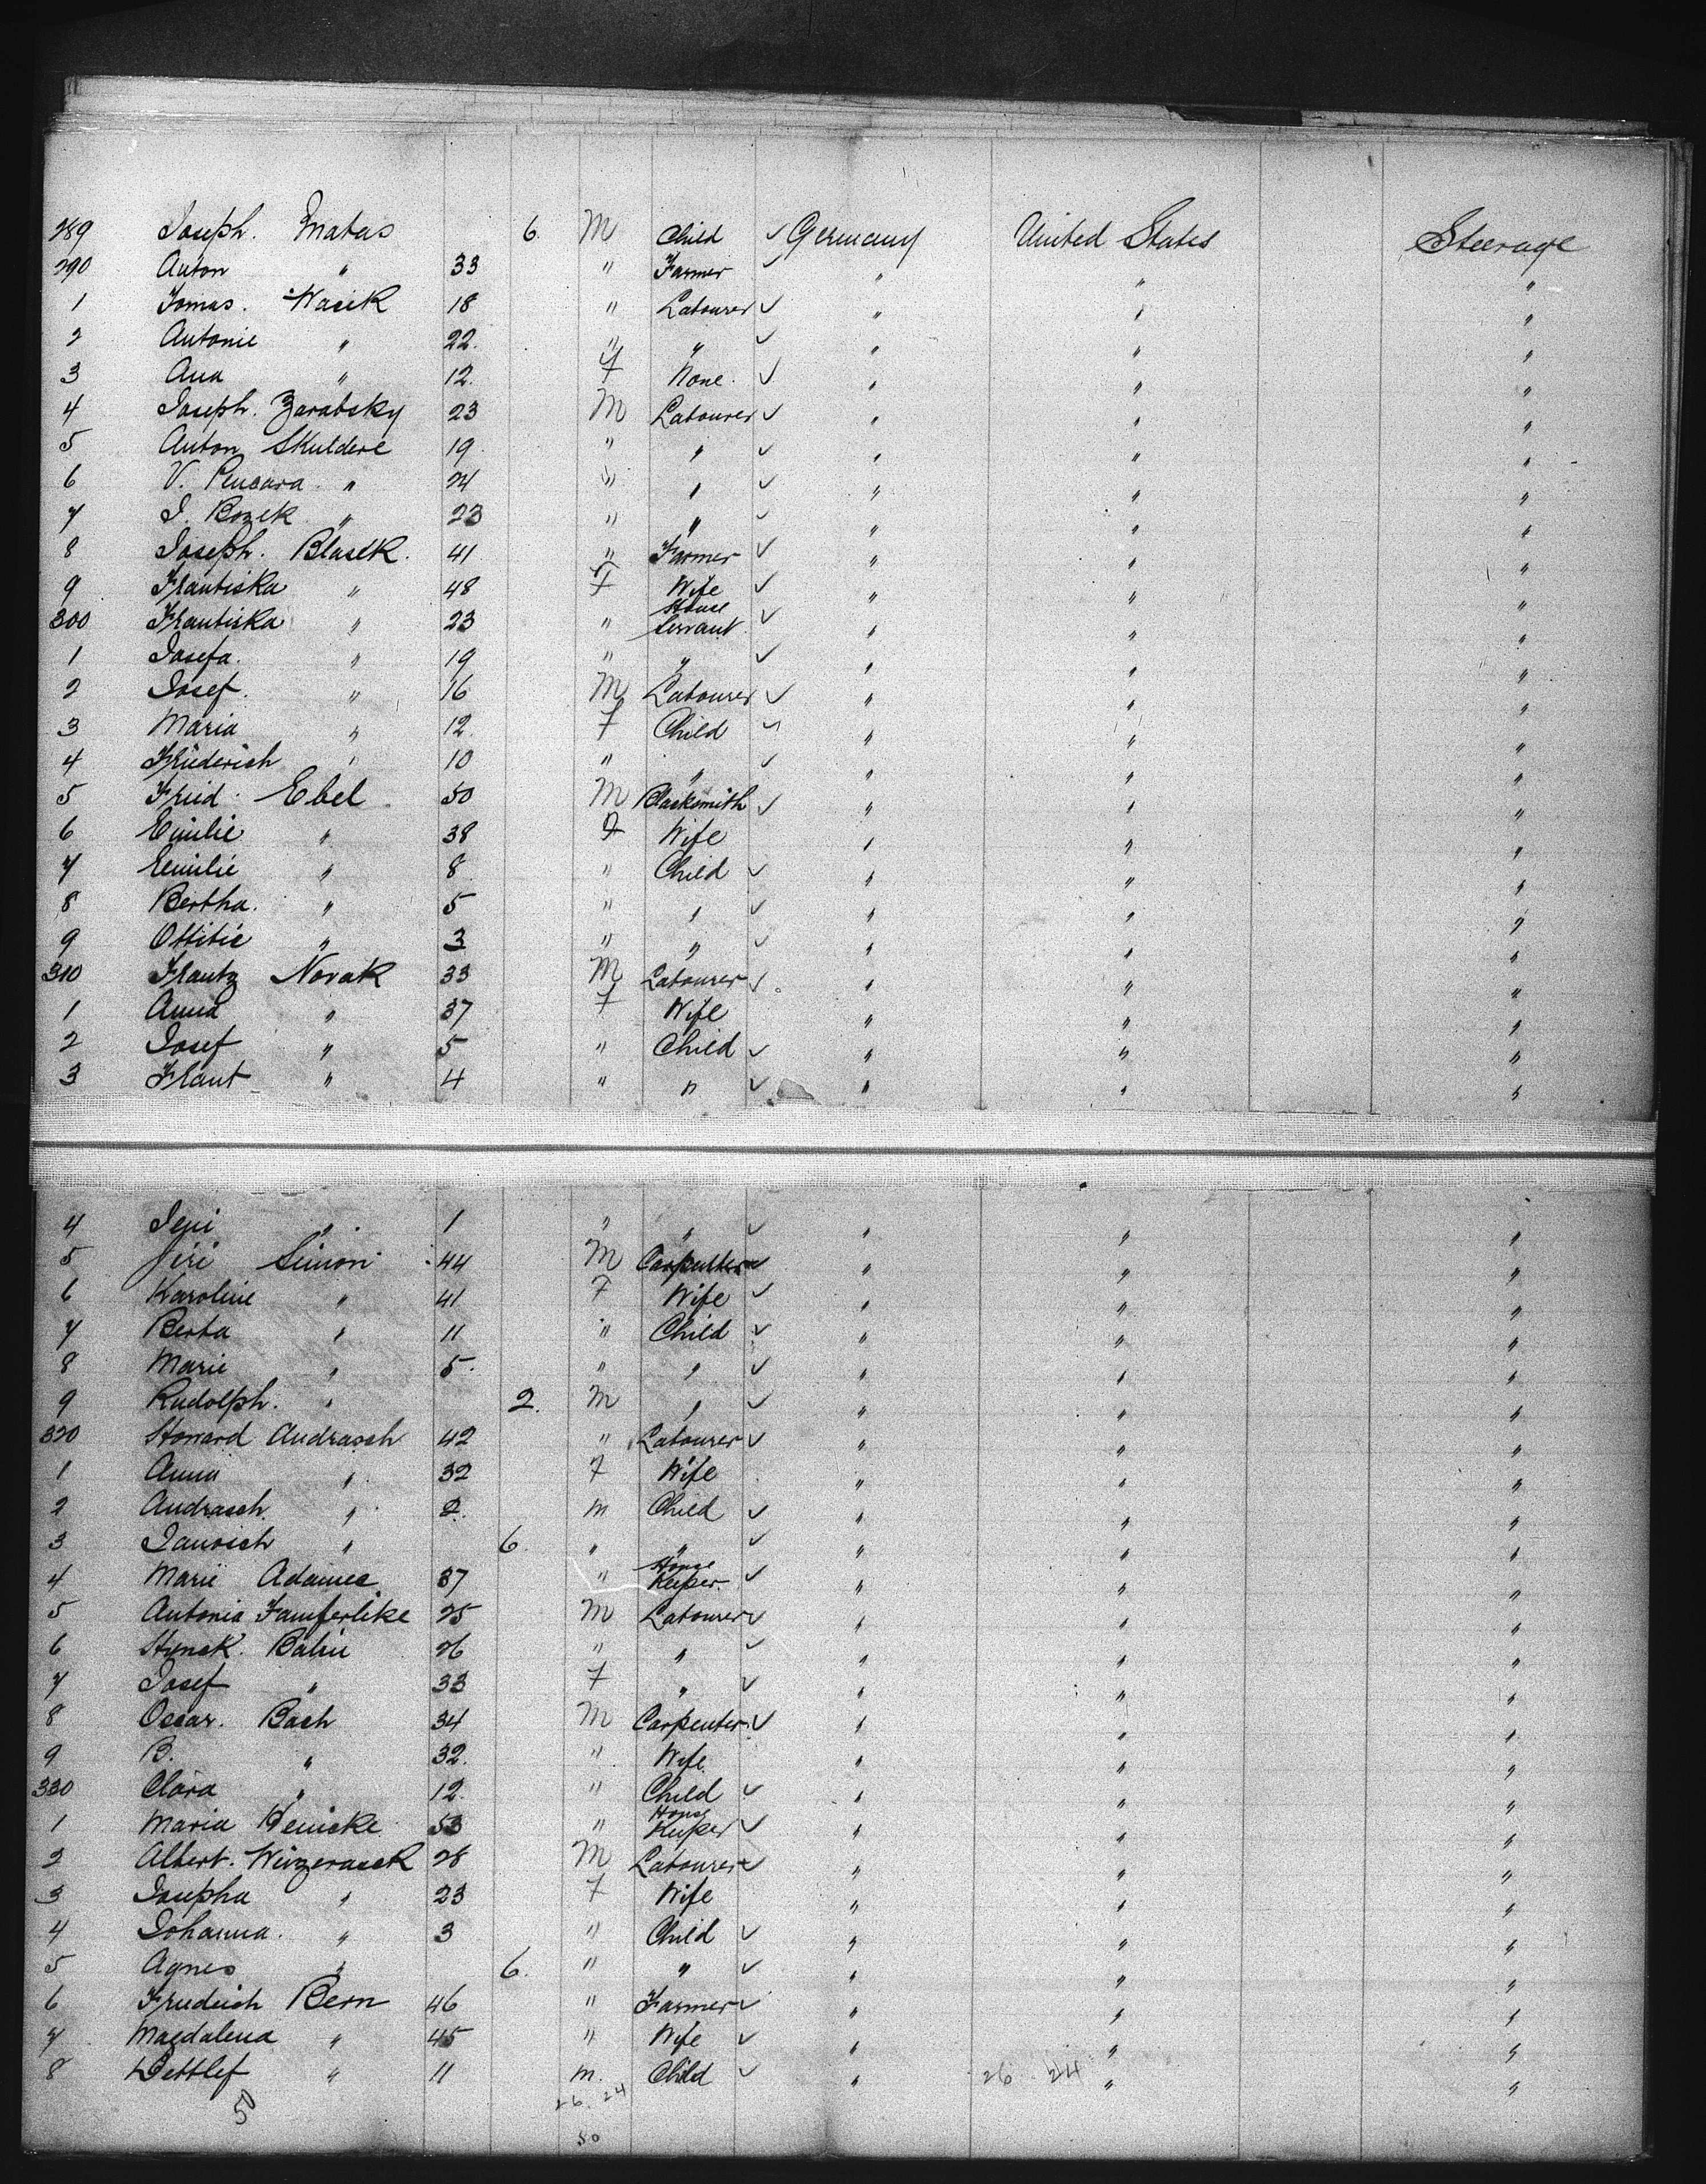 289 Joseph. Matas 6. M Child ✓ Germany United States Steerage
290 Anton " 33 " Farmer ✓ " " "
1 Tomas. Wasik 18 " Labourer ✓ " " "
2 Antonie " 22. " " ✓ " " "
3 Ana " 12. F None. ✓ " " "
4 Joseph. Zarabsky 23 M Labourer ✓ " " "
5 Anton Skuldere 19 " " ✓ " " "
6 V. Pencara " 24 " " ✓ " " "
7 J. Bozek " 23 " " ✓ " " "
8 Joseph. Blasek. 41 " Farmer ✓ " " "
9 Frantiska " 48 F Wife ✓ " " "
300 Frantiska " 23 " House Servant ✓ " " "
1 Josefa. " 19 " " ✓ " " "
2 Josef. " 16 M Labourer ✓ " " "
3 Maria " 12. F Child ✓ " " "
4 Friederich " 10 " " ✓ " " "
5 Fried. Ebel. 50 M Blacksmith ✓ " " "
6 Emilie " 38 F Wife " " "
7 Emilie " 8 " Child ✓ " " "
8 Bertha. " 5 " " ✓ " " "
9 Ottitie " 3 " " ✓ " " "
310 Frantz Novak 33 M Labourer ✓ " " "
1 Anna " 37 F Wife " " "
2 Josef " 5 " Child ✓ " " "
3 Frant " 4 " " ✓ " " "
4 " 1 " " ✓ " " "
5 Jiri Simon 44 M Carpenter ✓ " " "
6 Karoline " 41 F Wife ✓ " " "
7 Berta " 11 " Child ✓ " " "
8 Marie " 5. " " ✓ " " "
9 Rudolph. " 2. M " ✓ " " "
320 Andrasch 42 " Labourer ✓ " " "
1 Anna " 32 F Wife " " "
2 Andrasch. " 2. m Child ✓ " " "
3 " 6. " " ✓ " " "
4 Marie Adamec 37 " House Keeper. ✓ " " "
5 Antonia Famferlike 25 M Labourer ✓ " " "
6 26 " " ✓ " " "
7 Josef " 33 F " ✓ " " "
8 Oscar. Bach 34 M Carpenter. ✓ " " "
9 B. " 32. " Wife. " " "
330 Clara " 12. " Child ✓ " " "
1 Maria Benicke 53 " House Keeper ✓ " " "
2 Albert. 28 M Labourer ✓ " " "
3 Josepha " 23 F Wife " " "
4 Johanna. " 3 " Child ✓ " " "
5 Agnes " 6. " " ✓ " " "
6 Friedrich Bern 46 " Farmer ✓ " " "
7 Magdalena " 45 " Wife ✓ " " "
8 Dettlef " 11 m. Child ✓ " 26 24 " "
50 26. 24
50